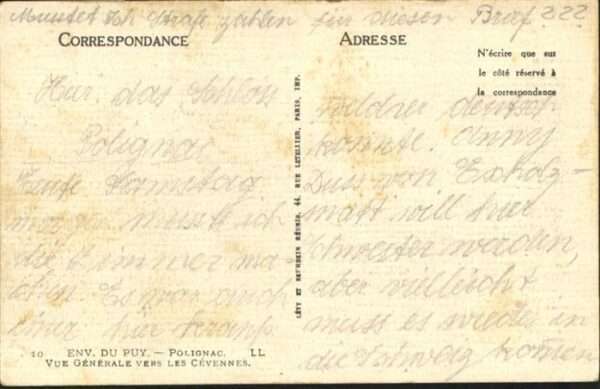 Musstet Ihr Strafe zahlen für diesen Brief ???
CORRESPONDANCE
ADRESSE
N'écrire que sur
le côté réservé à
la correspondance
Hier das Schloss
Polignac
Heute Samstag
morgen musste ich
die Zimmer ma-
chen. Es war auch
einer hier
konnte. Anny
Duss von Escholz-
matt will hier
Schwester werden,
aber vielleicht
muss es wieder in
die Schweiz kommen
LÉVY ET NEURDEIN RÉUNIS, 44, RUE LETELLIER, PARIS, IMP.
10 ENV. DU PUY. — POLIGNAC. LL
VUE GÉNÉRALE VERS LES CÉVENNES.